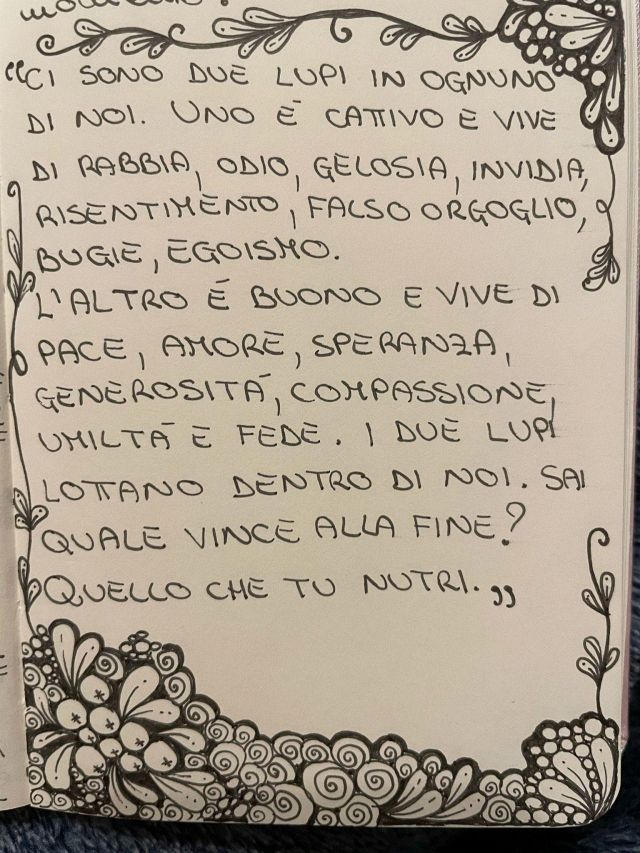 “CI SONO DUE LUPI IN OGNUNO
DI NOI. UNO É CATTIVO E VIVE
DI RABBIA, ODIO, GELOSIA, INVIDIA,
RISENTIMENTO, FALSO ORGOGLIO,
BUGIE, EGOISMO.
L'ALTRO É BUONO E VIVE DI
PACE, AMORE, SPERANZA,
GENEROSITÁ, COMPASSIONE,
UMILTÁ E FEDE. I DUE LUPI
LOTTANO DENTRO DI NOI. SAI
QUALE VINCE ALLA FINE?
QUELLO CHE TU NUTRI.”